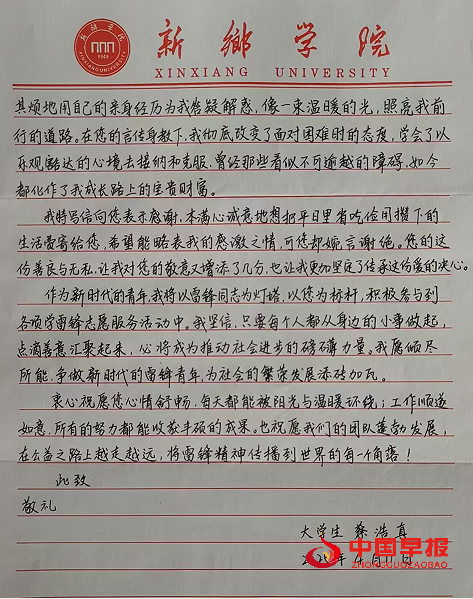 新乡学院
XINXIANG UNIVERSITY
1949
新鄉学院
XINXIANG UNIVERSITY
其烦地用自己的亲身经历为我答疑解惑,像一束温暖的光,照亮我前
行的道路。在您的言传身教下,我彻底改变了面对困难时的态度,学会了以
乐观豁达的心境去接纳和克服,曾经那些看似不可逾越的障碍,如今
都化作了我成长路上的宝贵财富。
我特写信向您表示感谢,本满心诚意地想把平日里省吃俭用攒下的
生活费寄给您,希望能略表我的感激之情,可您却婉言谢绝。您的这
份善良与无私,让我对您的敬意又增添了几分,也让我更加坚定了传承这份爱的决心。
作为新时代的青年,我将以雷锋同志为灯塔,以您为标杆,积极参与到
各项学雷锋志愿服务活动中。我坚信,只要每个人都从身边的小事做起,
点滴善意汇聚起来,必将成为推动社会进步的磅礴力量。我愿倾尽
所能,争做新时代的雷锋青年,为社会的繁荣发展添砖加瓦。
衷心祝愿您心情舒畅,每天都能被阳光与温暖环绕;工作顺遂
如意,所有的努力都能收获丰硕的成果。也祝愿我们的团队蓬勃发展,
在公益之路上越走越远,将雷锋精神传播到世界的每一个角落!
此致
敬礼
大学生 蔡浩真
年4月11日
中国早报
ZHONGGUOZAOBAO